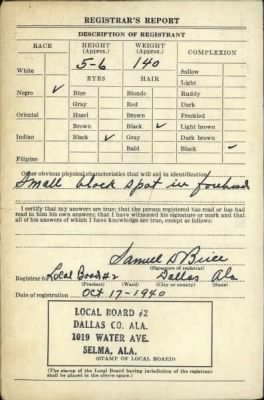 REGISTRAR'S REPORT
DESCRIPTION OF REGISTRANT
RACE HEIGHT (Approx.) WEIGHT (Approx.) COMPLEXION
5-6 140
White Sallow
EYES HAIR Light
Negro ✓ Blue Blonde Ruddy
Gray Red Dark
Oriental Hazel Brown Freckled
Brown Black ✓ Light brown
Indian Black ✓ Gray Dark brown
Bald Black ✓
Filipino
Other obvious physical characteristics that will aid in identification
Small black spot in forehead
I certify that my answers are true; that the person registered has read or has had
read to him his own answers; that I have witnessed his signature or mark and that
all of his answers of which I have knowledge are true, except as follows:
Samuel D Brice
(Signature of registrar)
Registrar for Local Board #2 Dallas Ala
(Precinct) (Ward) (City or county) (State)
Date of registration Oct 17-1940
LOCAL BOARD #2
DALLAS CO. ALA.
1019 WATER AVE.
SELMA, ALA.
(STAMP OF LOCAL BOARD)
(The stamp of the Local Board having jurisdiction of the registrant
shall be placed in the above space.)